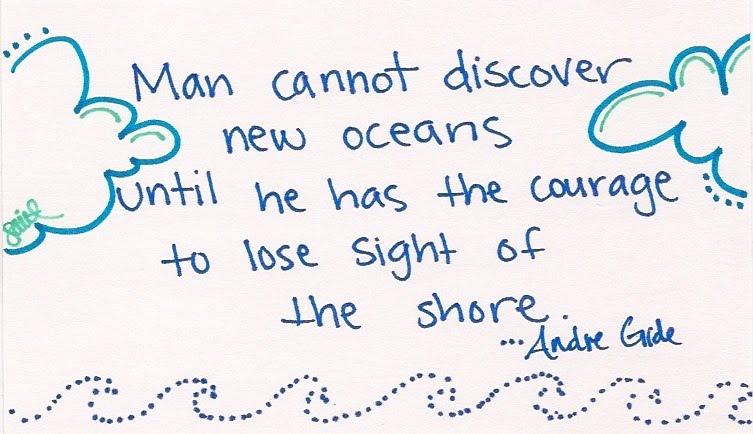 Man cannot discover
new oceans
until he has the courage
to lose sight of
the shore.
...Andre Gide